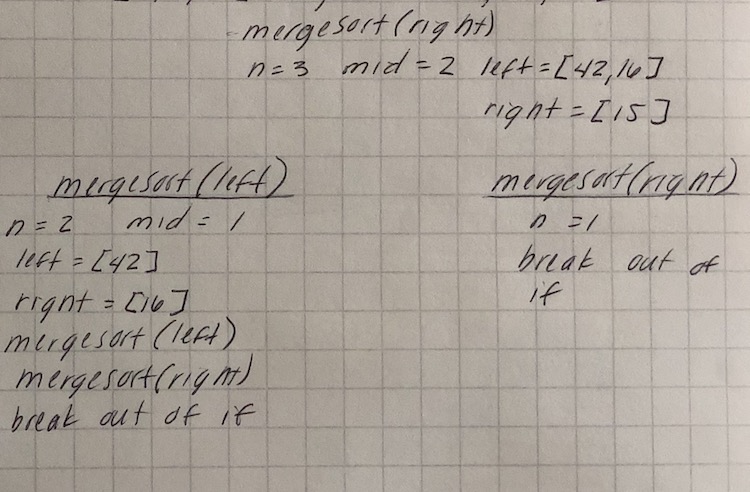 mergesort(right)
n=3 mid=2 left=[42,16]
right=[15]
mergesort(left)
n=2 mid=1
left=[42]
right=[16]
mergesort(left)
mergesort(right)
break out of if
mergesort(right)
n=1
break out of
if